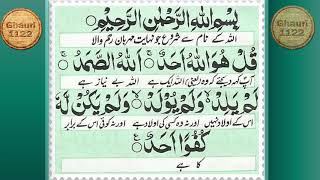 Ghauri 1122
Ghauri 1122
بِسْمِ اللهِ الرَّحْمٰنِ الرَّحِيْمِ
اللہ کے نام سے شروع جو نہایت مہربان رحم والا
قُلْ هُوَ اللهُ اَحَدٌ اَللهُ الصَّمَدُ
آپ کہہ دیجئے کہ وہ (یعنی) اللہ ایک ہے اللہ بے نیاز ہے
لَمْ يَلِدْ وَلَمْ يُوْلَدْ وَلَمْ يَكُنْ لَّهٗ
اس کے اولاد نہیں اور نہ وہ کسی کی اولاد ہے اور نہ کوئی اس کے برابر
كُفُوًا اَحَدٌ
کا ہے